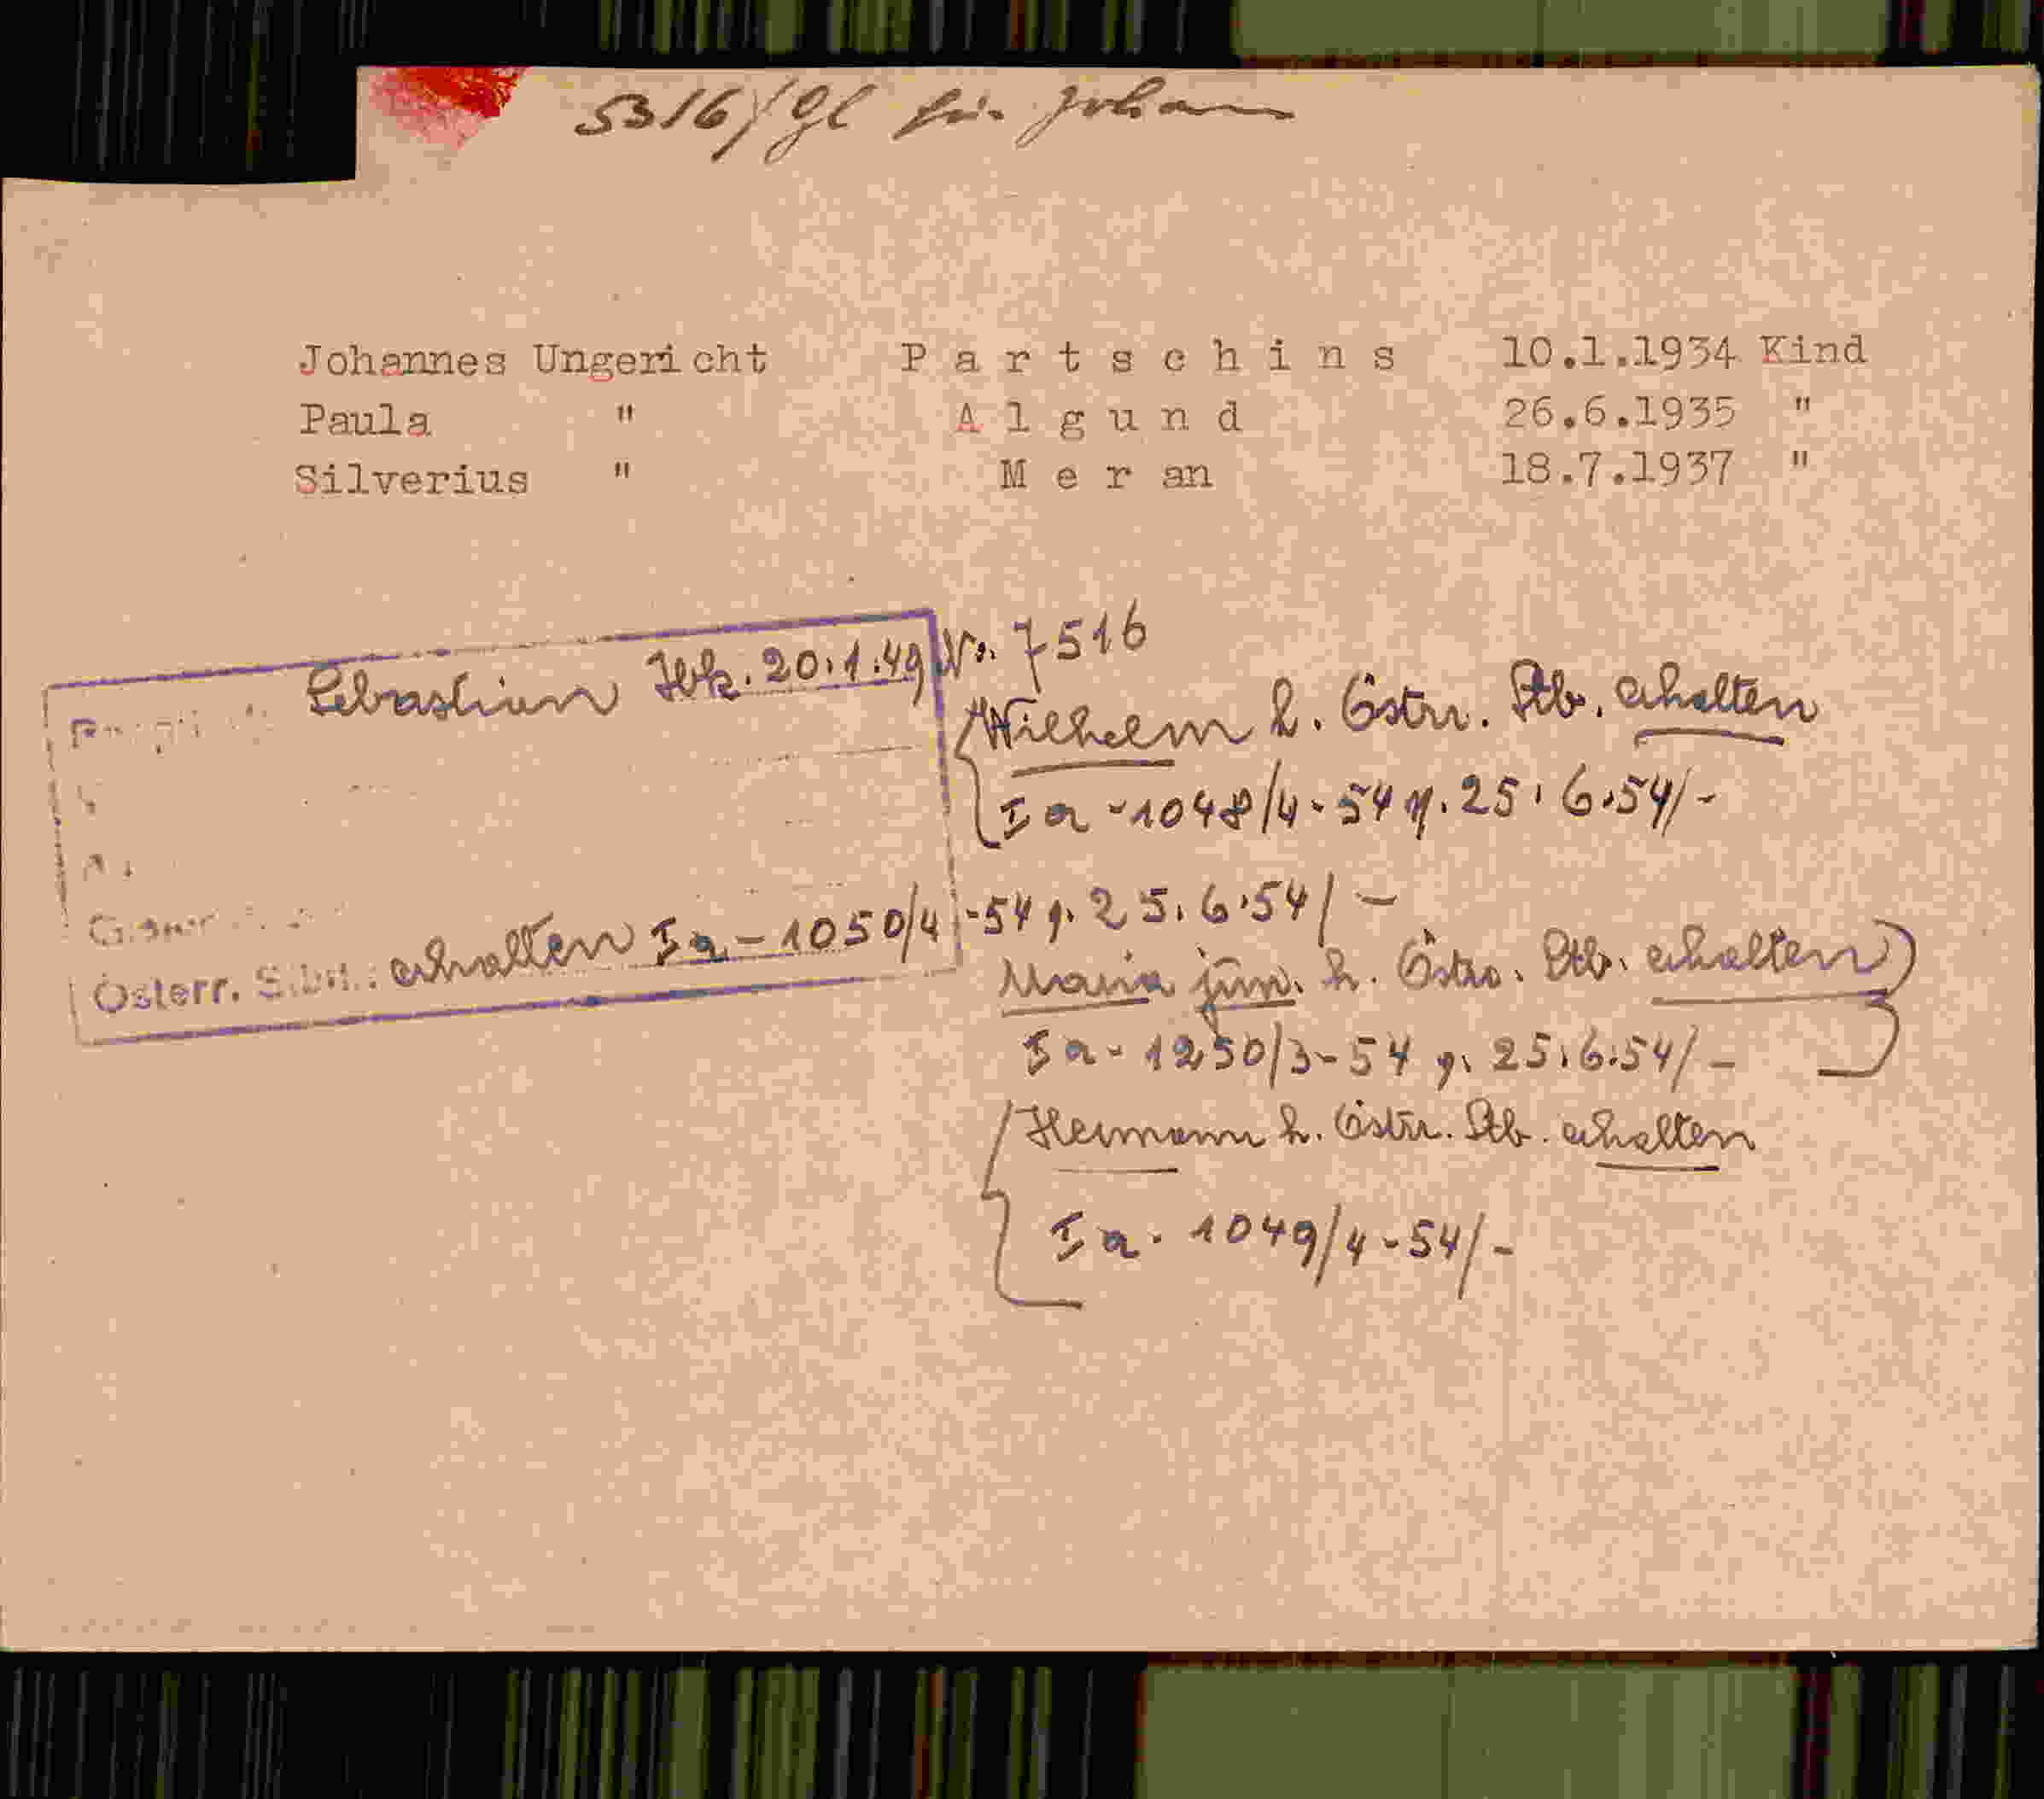 5316/Gl für Johann
Johannes Ungericht Partschins 10.1.1934 Kind
Paula " Algund 26.6.1935 "
Silverius " Meran 18.7.1937 "
Sebastian Hbk. 20.1.49 Nr. 7516
Wilhelm h. Östrr. Stb. erhalten
Ia-1048/4-54 v. 25.6.54/-
Österr. S.bü.: erhalten Ia-1050/4-54 v. 25.6.54/-
Maria jun. h. Östr. Stb. erhalten
Ia-1250/3-54 v. 25.6.54/-
Hermann h. Östrr. Stb. erhalten
Ia-1049/4-54/-